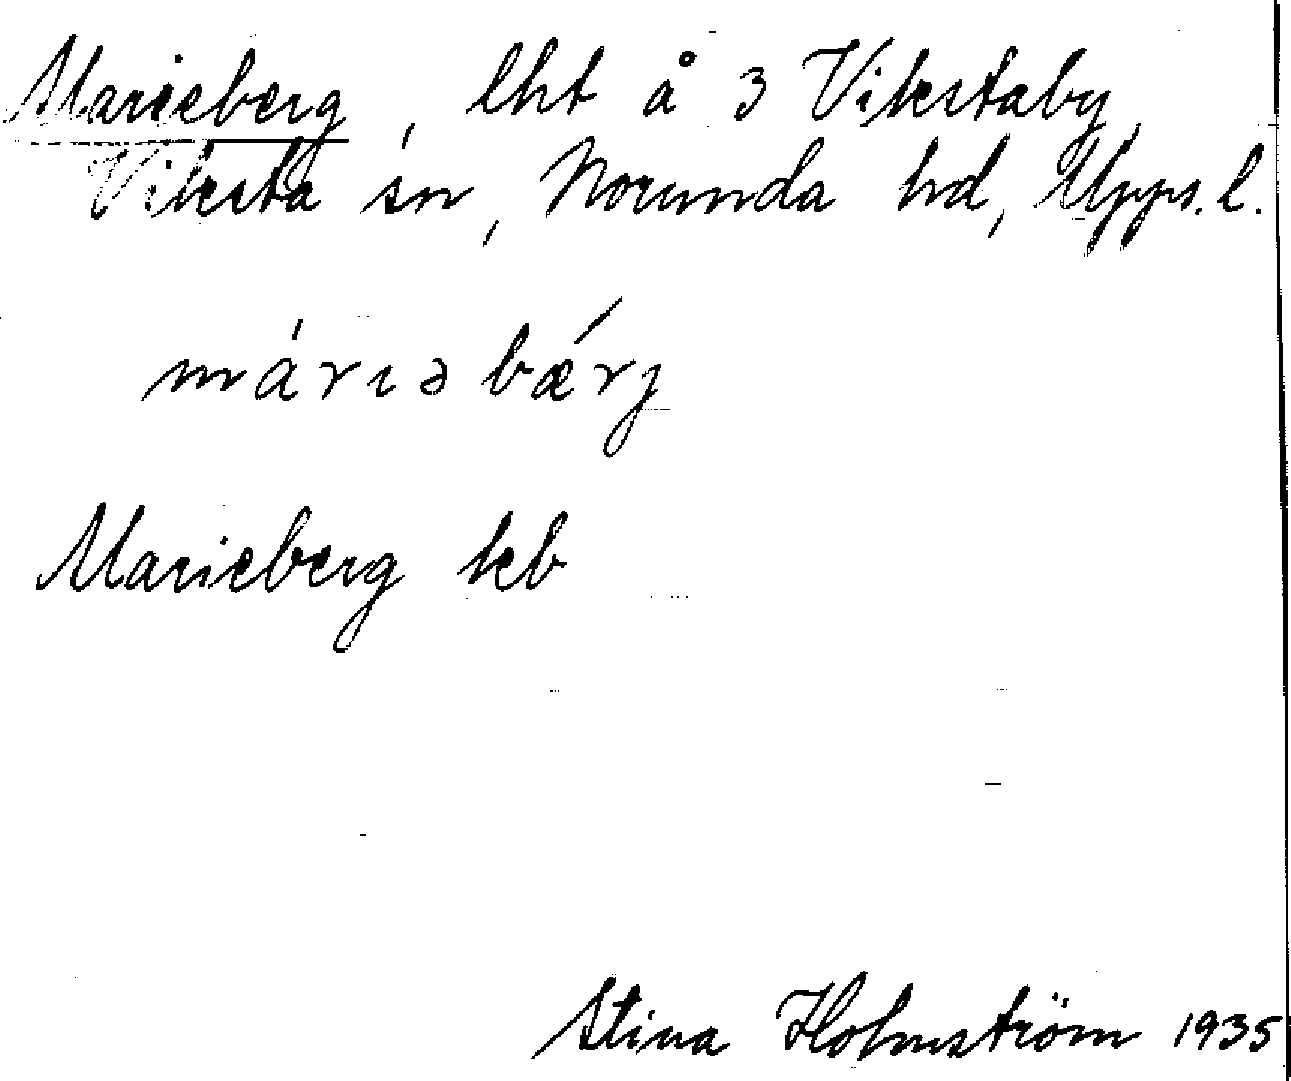 Marieberg, lht å 3 Vikstaby,
Viksta sn, Norunda hd, Upps. l.
máriəbǽrj
Marieberg kb
Stina Holmström 1935